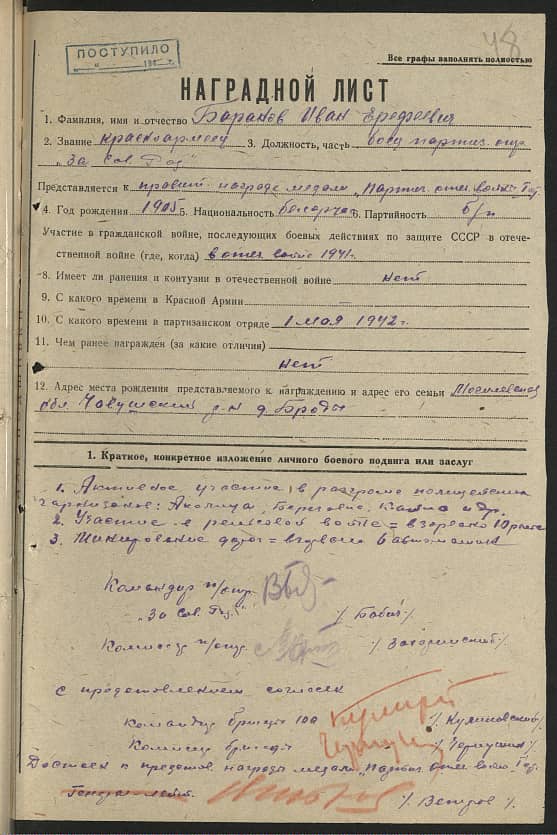 48
ПОСТУПИЛО
Все графы заполнять полностью
НАГРАДНОЙ ЛИСТ
1. Фамилия, имя и отчество Баранов Иван Ерофеевич
2. Звание красноармеец 3. Должность, часть боец партиз. отр.
„За Сов. Род."
Представляется к правит. награде медали „Партиз. отеч. войны"
4. Год рождения 1905 5. Национальность белорус 6. Партийность б/п
Участие в гражданской войне, последующих боевых действиях по защите СССР в отече-
ственной войне (где, когда) в отеч. войне 1941 г.
8. Имеет ли ранения и контузии в отечественной войне нет
9. С какого времени в Красной Армии
10. С какого времени в партизанском отряде 1 мая 1942 г.
11. Чем ранее награжден (за какие отличия)
нет
12. Адрес места рождения представляемого к награждению и адрес его семьи Могилевская
обл. Чаусский р-н д. Броды
1. Краткое, конкретное изложение личного боевого подвига или заслуг
1. Активное участие в разгроме полицейских
гарнизонов: и др.
2. Участие в рельсовой войне = взорвано 10 рельс
3. Минирование дорог =
Командир п/отр.
„За Сов. Род." /Бабич/
Комиссар п/отр.
С представлением согласен
Командир бригады 100 /Кулиновский/
Комиссар бригады
Достоин к представ. награды медали „Партиз. отеч. войны"
/Ветров/